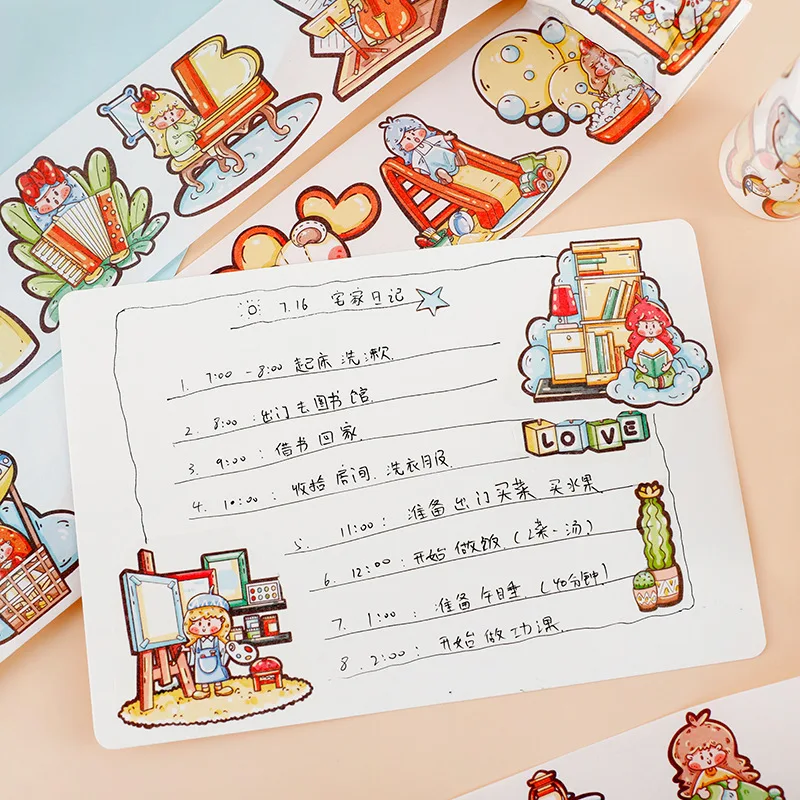 7.16 宅家日记
1. 7:00 - 8:00 起床 洗漱
2. 8:00 : 出门去图书馆.
3. 9:00 : 借书回家.
4. 10:00 : 收拾房间. 洗衣服
LOVE
5. 11:00 : 准备出门买菜 买水果.
6. 12:00 : 开始做饭. (2菜一汤)
7. 1:00 : 准备午睡. (40分钟)
8. 2:00 : 开始做功课.